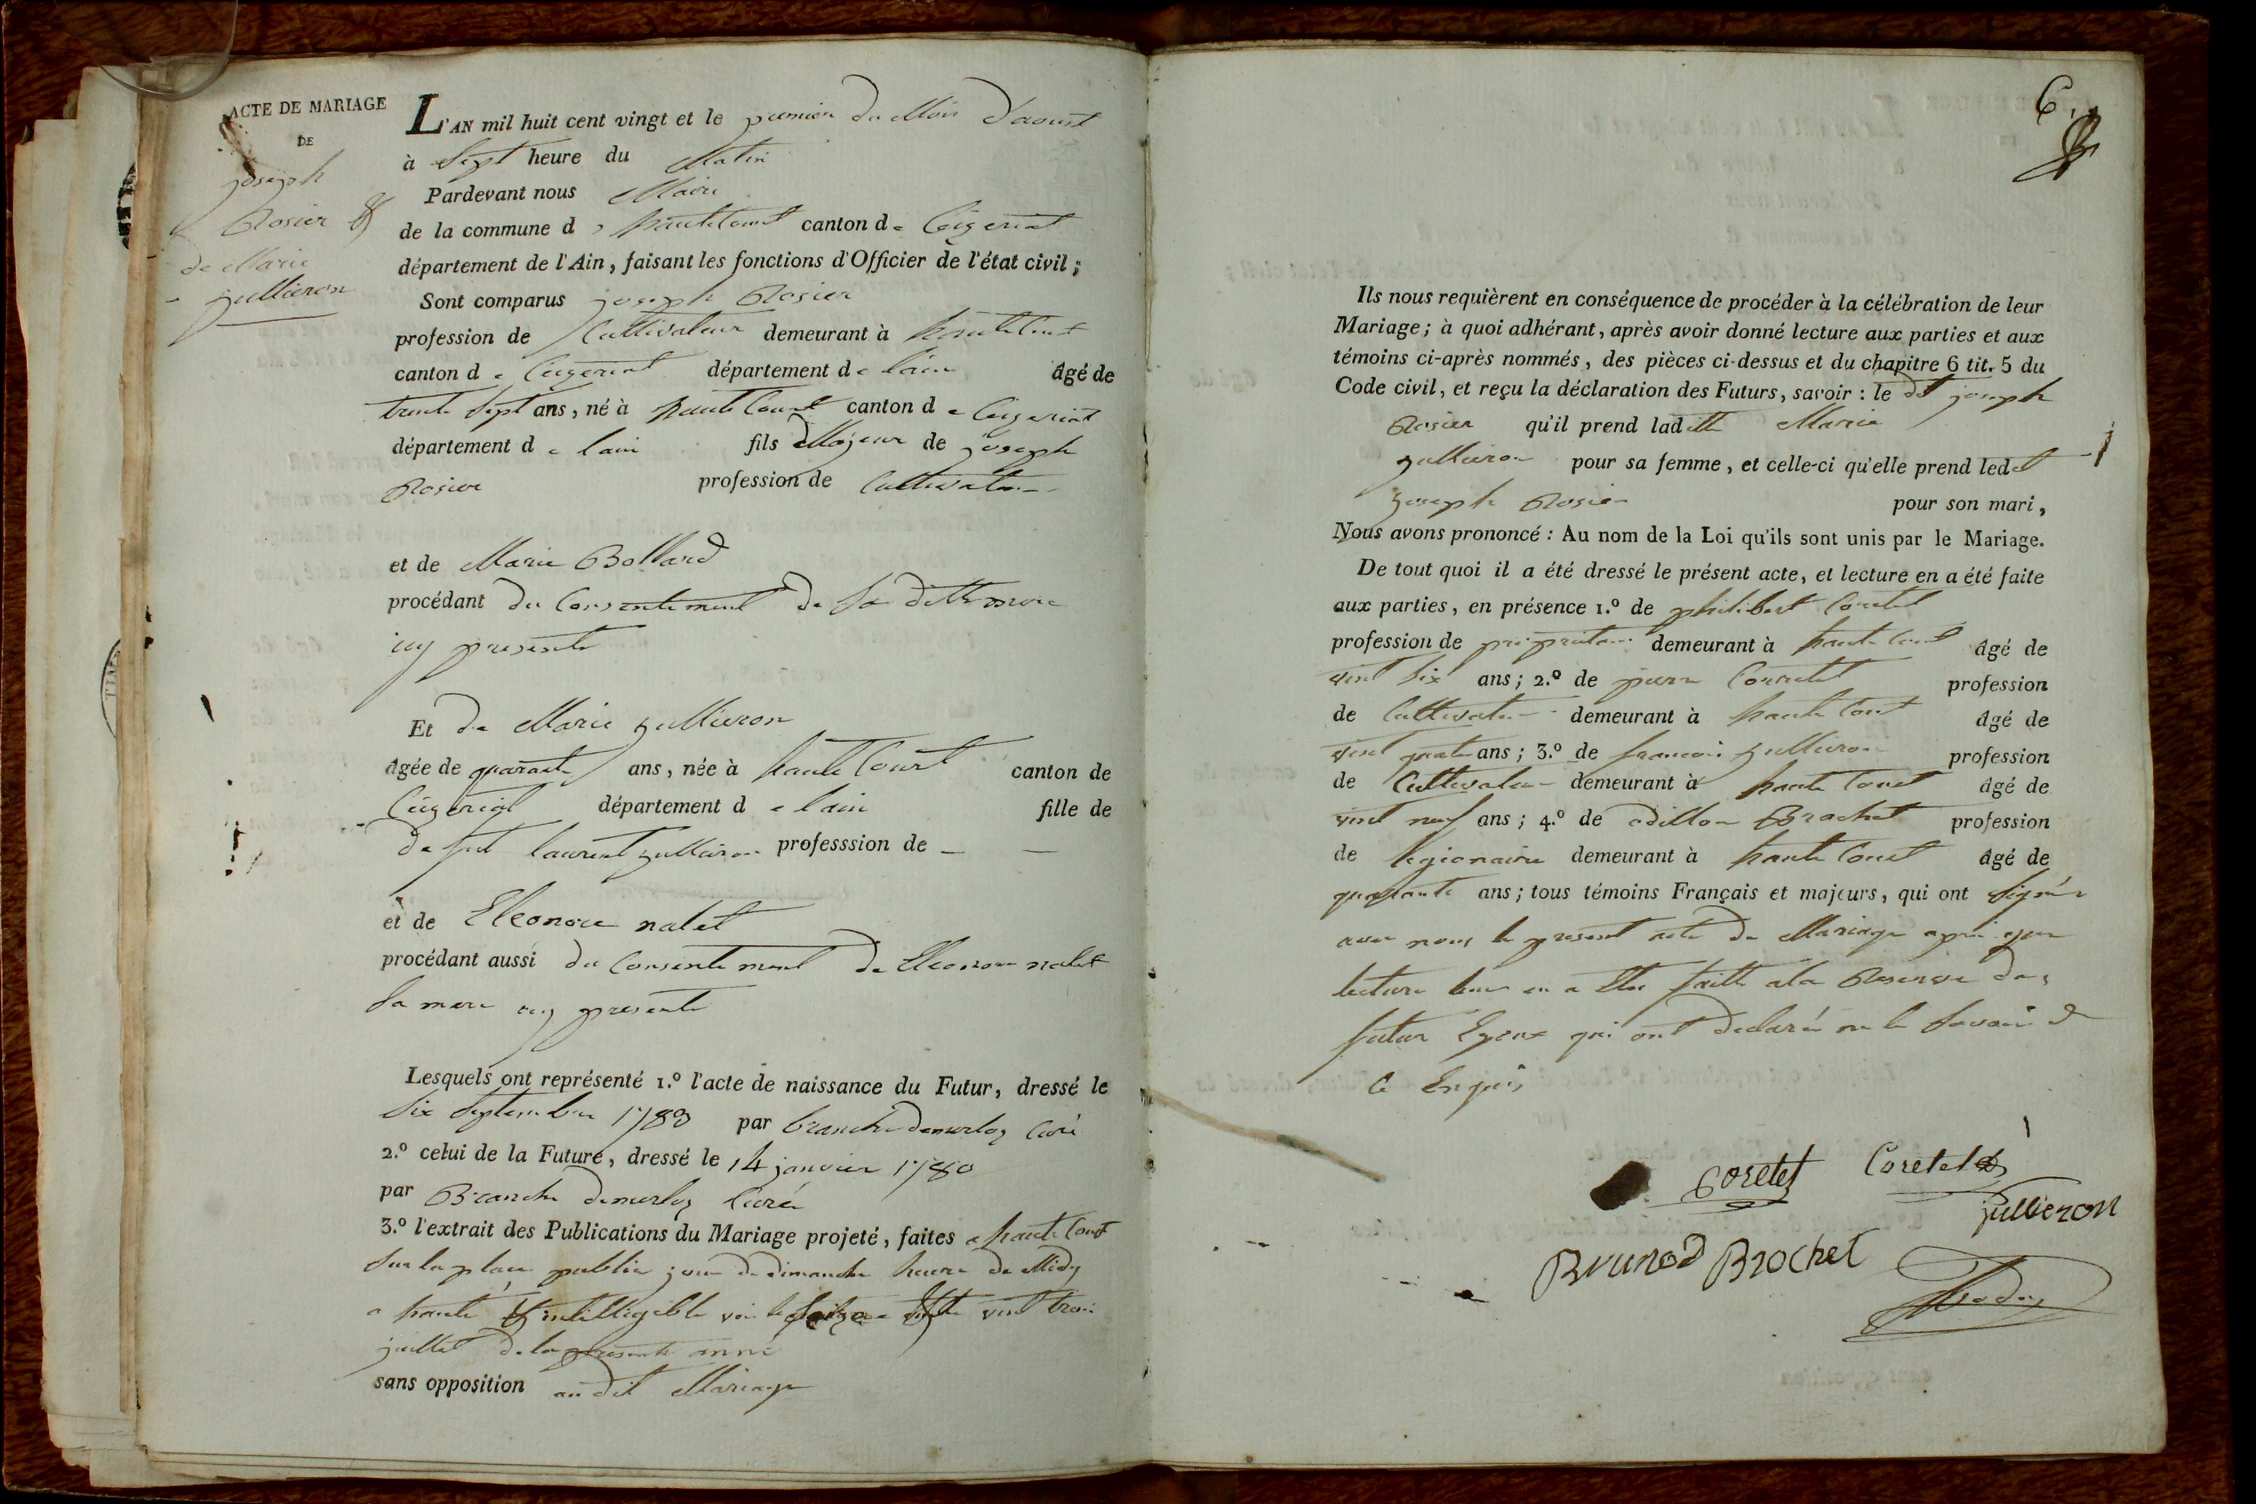 ACTE DE MARIAGE
DE
joseph
Rosier &
de Marie
jullieron
L'AN mil huit cent vingt et le premier du Mois d'aoust
à Sept heure du Matin
Pardevant nous Maire
de la commune d hautecourt canton de Ceyzeriat
département de l'Ain, faisant les fonctions d'Officier de l'état civil ;
Sont comparus joseph Rosier
profession de Cultivateur demeurant à hautecourt
canton de Ceyzeriat département de lain âgé de
trente Sept ans, né à haute Court canton de Ceyzeriat
département de lain fils Majeur de joseph
Rosier profession de Cultivateur
et de Marie Bollard
procédant du Consentement de Sa ditte mere
icy presente
Et de Marie jullieron
âgée de quarante ans, née à haute Court canton de
Ceyzeriat département de lain fille de
defut laurent jullieron professsion de — —
et de Eleonore nalet
procédant aussi du Consentement de Eleonore nalet
Sa mere icy presente
Lesquels ont représenté 1.º l'acte de naissance du Futur, dressé le
Six Septembre 1783 par branche demerloz Curé
2.º celui de la Future, dressé le 14 janvier 1780
par Branche demerloz Curé
3.º l'extrait des Publications du Mariage projeté, faites a haute Court
Sur la place public jour de dimanche heure de Midy
a haute & intelligible voix le Seize & vint trois
juillet de la presente anné
sans opposition au dit Mariage
6.
Ils nous requièrent en conséquence de procéder à la célébration de leur
Mariage ; à quoi adhérant, après avoir donné lecture aux parties et aux
témoins ci-après nommés, des pièces ci-dessus et du chapitre 6 tit. 5 du
Code civil, et reçu la déclaration des Futurs, savoir : le dt joseph
Rosier qu'il prend laditte Marie
jullieron pour sa femme, et celle-ci qu'elle prend ledt
joseph Rosier pour son mari,
Nous avons prononcé : Au nom de la Loi qu'ils sont unis par le Mariage.
De tout quoi il a été dressé le présent acte, et lecture en a été faite
aux parties, en présence 1.º de philibert Coretet
profession de proprietaire demeurant à haute Court âgé de
vint Six ans ; 2.º de pierre Corretet profession
de Cultivateur demeurant à haute Court âgé de
vint quatre ans ; 3.º de francois jullieron profession
de Cultivateur demeurant à haute Court âgé de
vint neuf ans ; 4.º de odillon Brochet profession
de legionaire demeurant à haute Court âgé de
quarante ans ; tous témoins Français et majeurs, qui ont Signés
avec nous le present acte de Mariage apres que
lecture leur en a Ete faitte a la Reserve des
futur Epoux qui ont declaré ne le Savoir de
Ce Enquis
Coretet Coretet
jullieron
Brunod Brochet